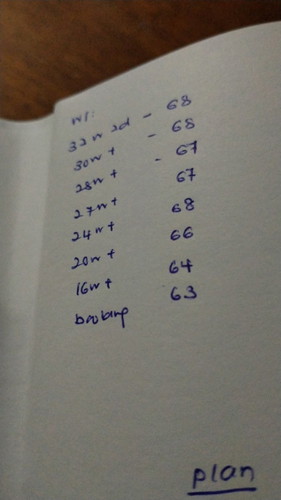 Wt:
32w 2d - 68
30w+ - 68
28w+ - 67
27w+ 67
24w+ 68
20w+ 66
16w+ 64
booking 63
plan